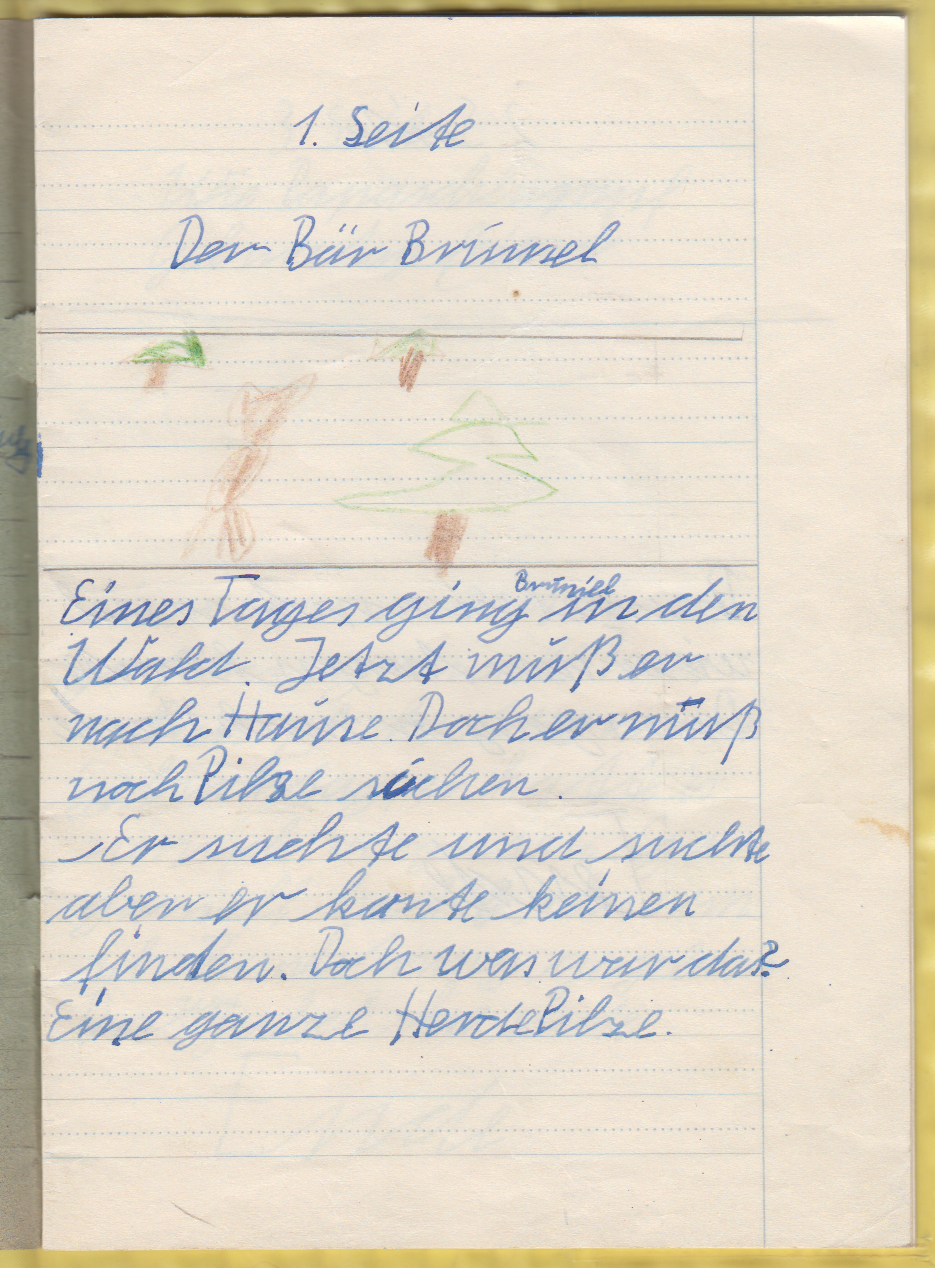 1. Seite
Der Bär Brumsel
Brumsel
Eines Tages ging in den
Wald. Jetzt muß er
nach Hause. Doch er muß
noch Pilze suchen.
Er suchte und suchte
aber er konte keinen
finden. Doch was war das?
Eine ganze Herde Pilze.